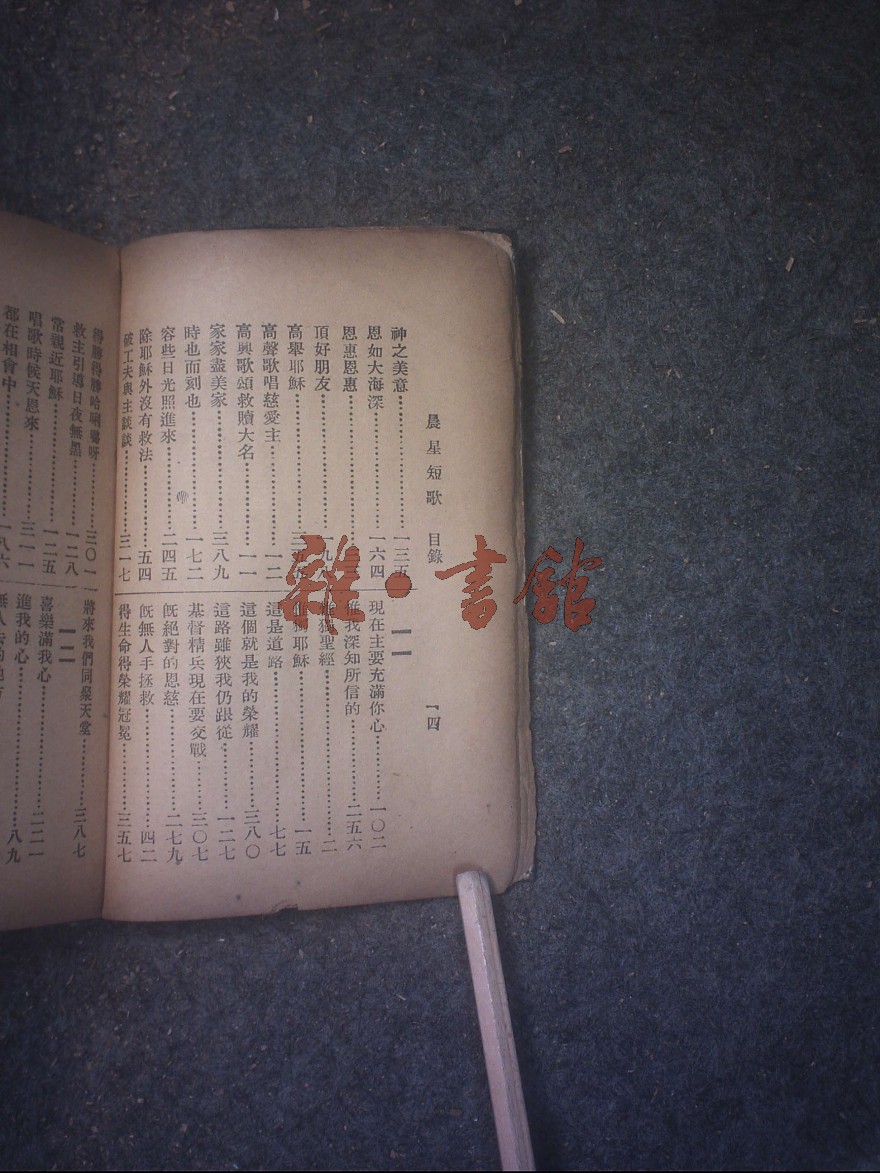 晨星短歌 目錄 一四
神之美意……一三五
恩如大海深……一六四
恩惠恩惠……
頂好朋友……一九
高舉耶穌……
高聲歌唱慈愛主……一二
高興歌頌救贖大名……一一
家家盡美家……三八九
時也而刻也……一七二
容些日光照進來……二四五
除耶穌外沒有救法……五四
破工夫與主談談……三一七
得勝得勝哈唎嚕呀……三〇一
救主引導日夜無黑……一二八
常親近耶穌……一二五
唱歌時候天恩來……三一一
都在相會中……一八六
一一
現在主要充滿你心……一〇二
惟我深知所信的……二五六
惟獨聖經……二
惟獨耶穌……一五
這是道路……七七
這個就是我的榮耀……三八〇
這路雖狹我仍跟從……一二七
基督精兵現在要交戰……三〇七
旣絕對的恩慈……二七九
旣無人手拯救……四二
得生命得榮耀冠冕……三五七
將來我們同聚天堂……三八七
一二
喜樂滿我心……二二一
進我的心……八九
無人
雜·書館